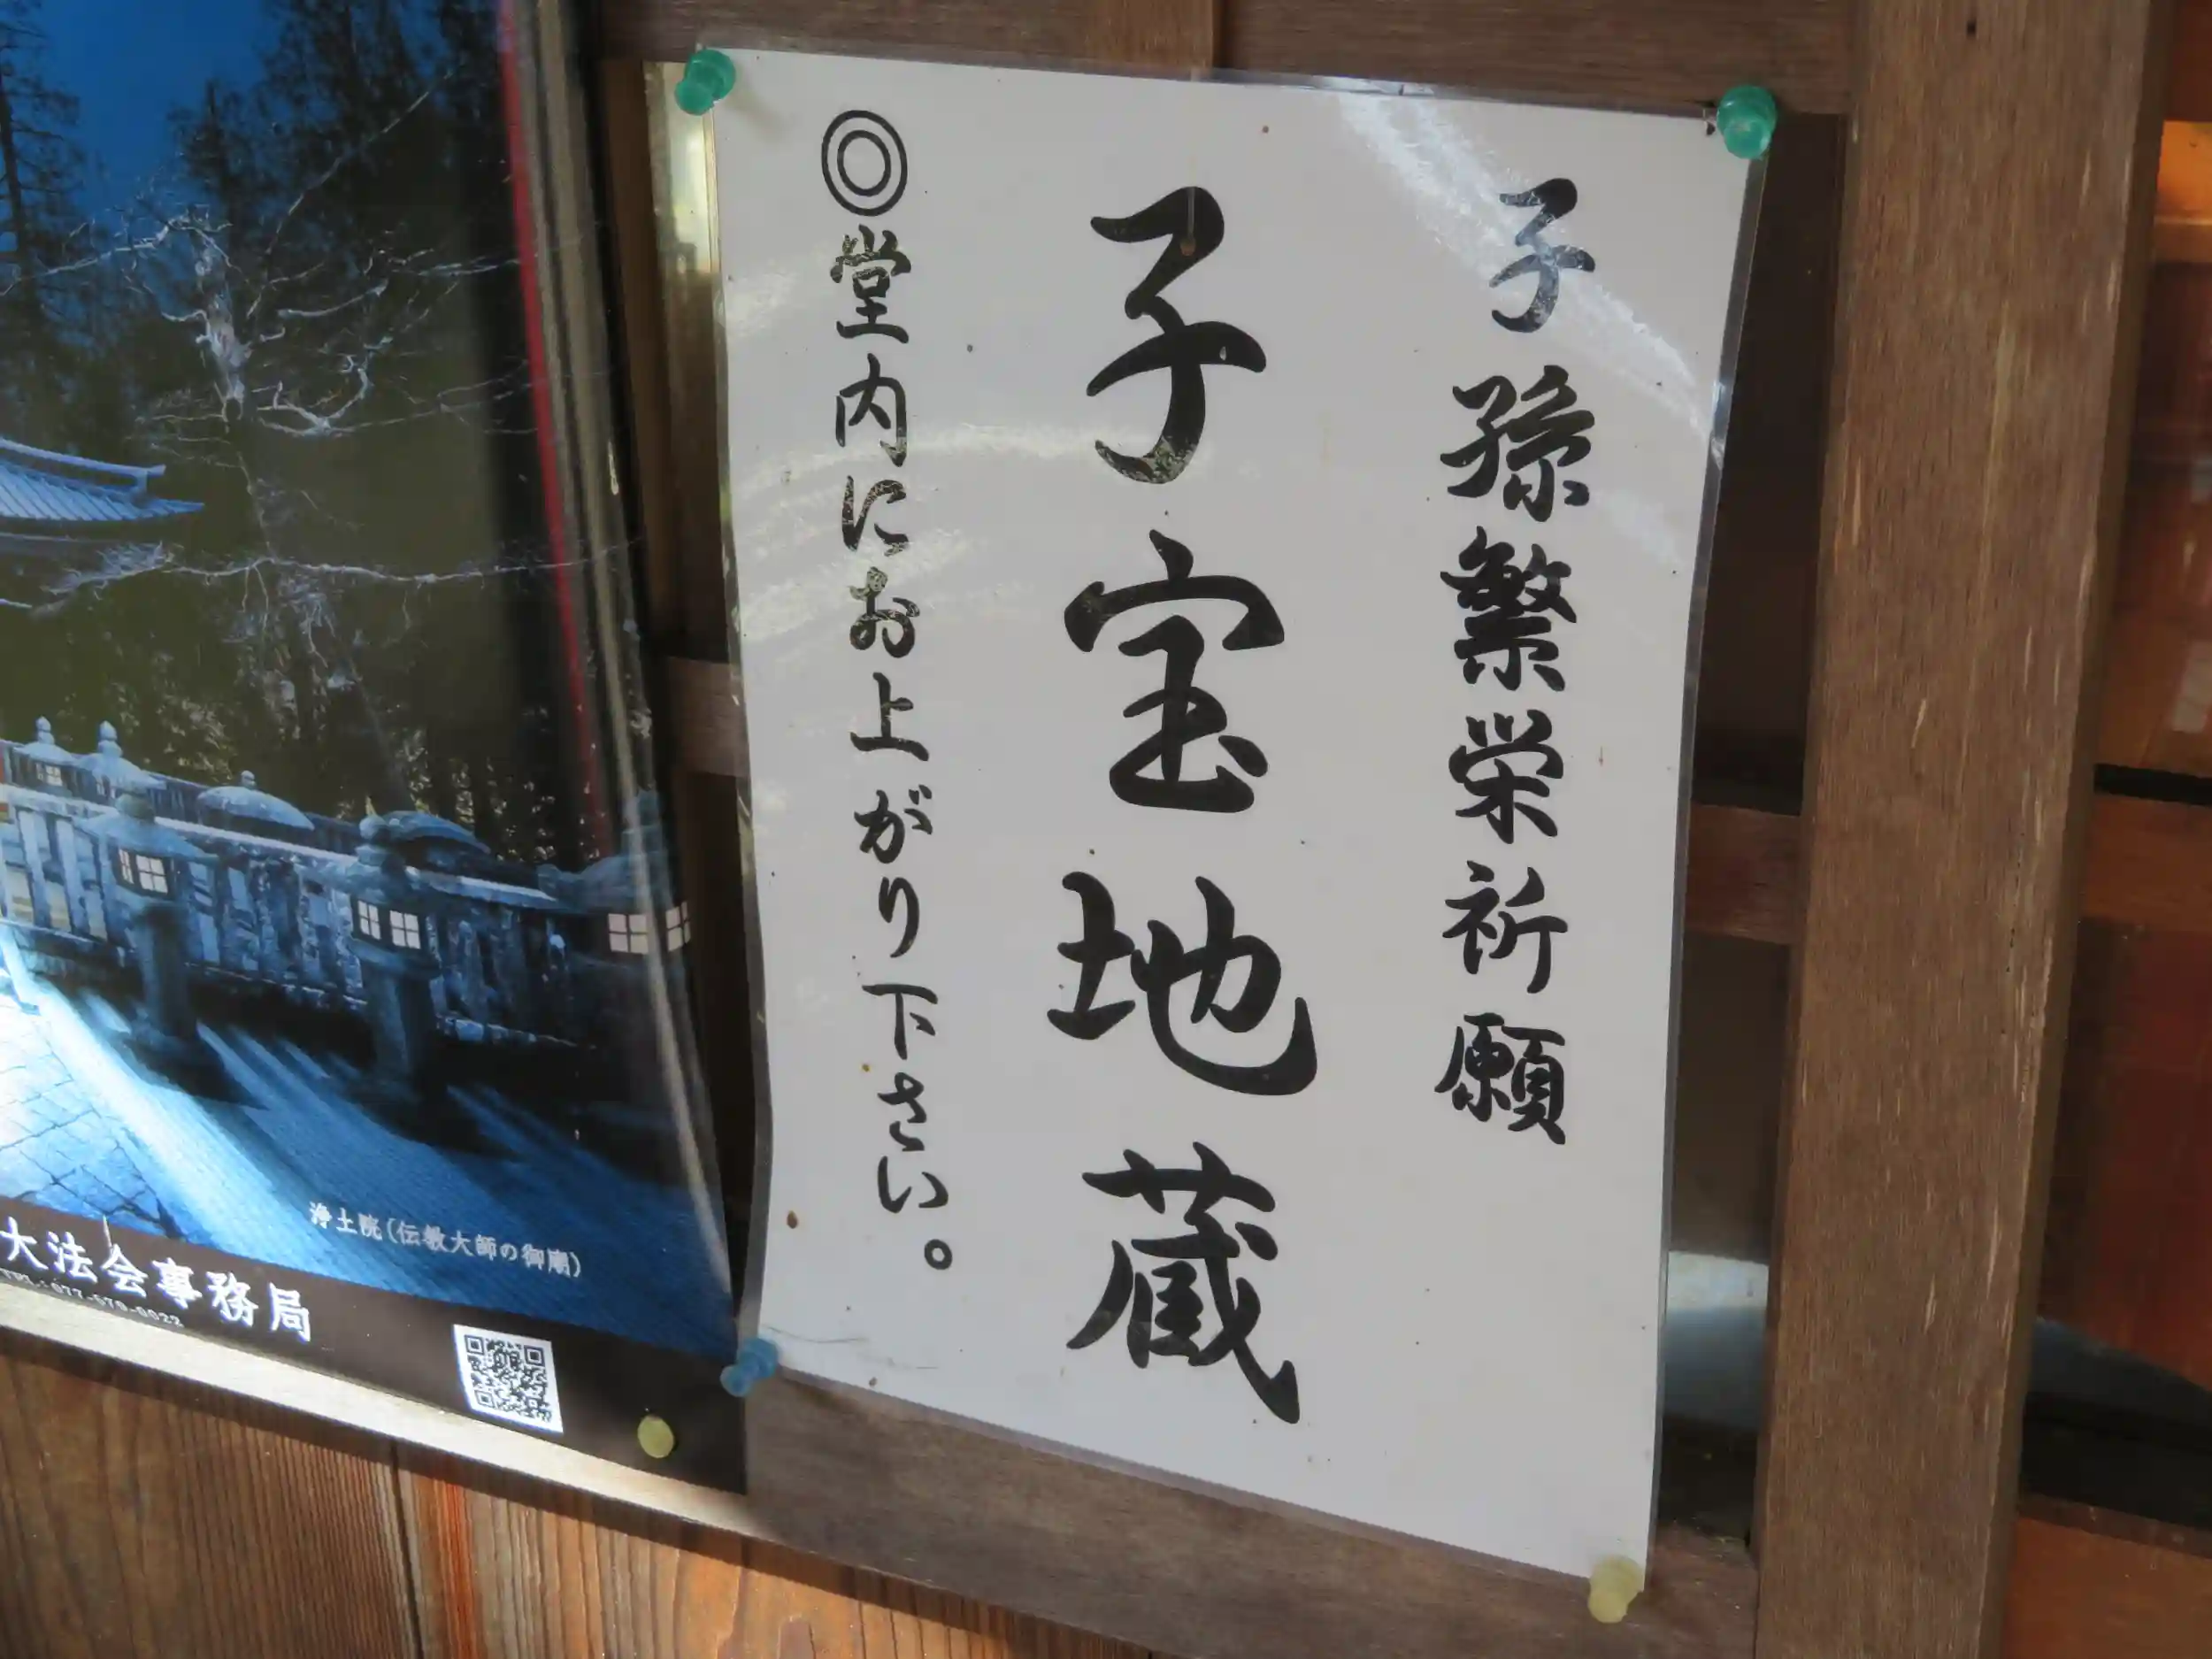 子孫繁栄祈願
子宝地蔵
◎堂内にお上がり下さい。
浄土院(伝教大師の御廟)
大法会事務局
TEL:077-579-0022